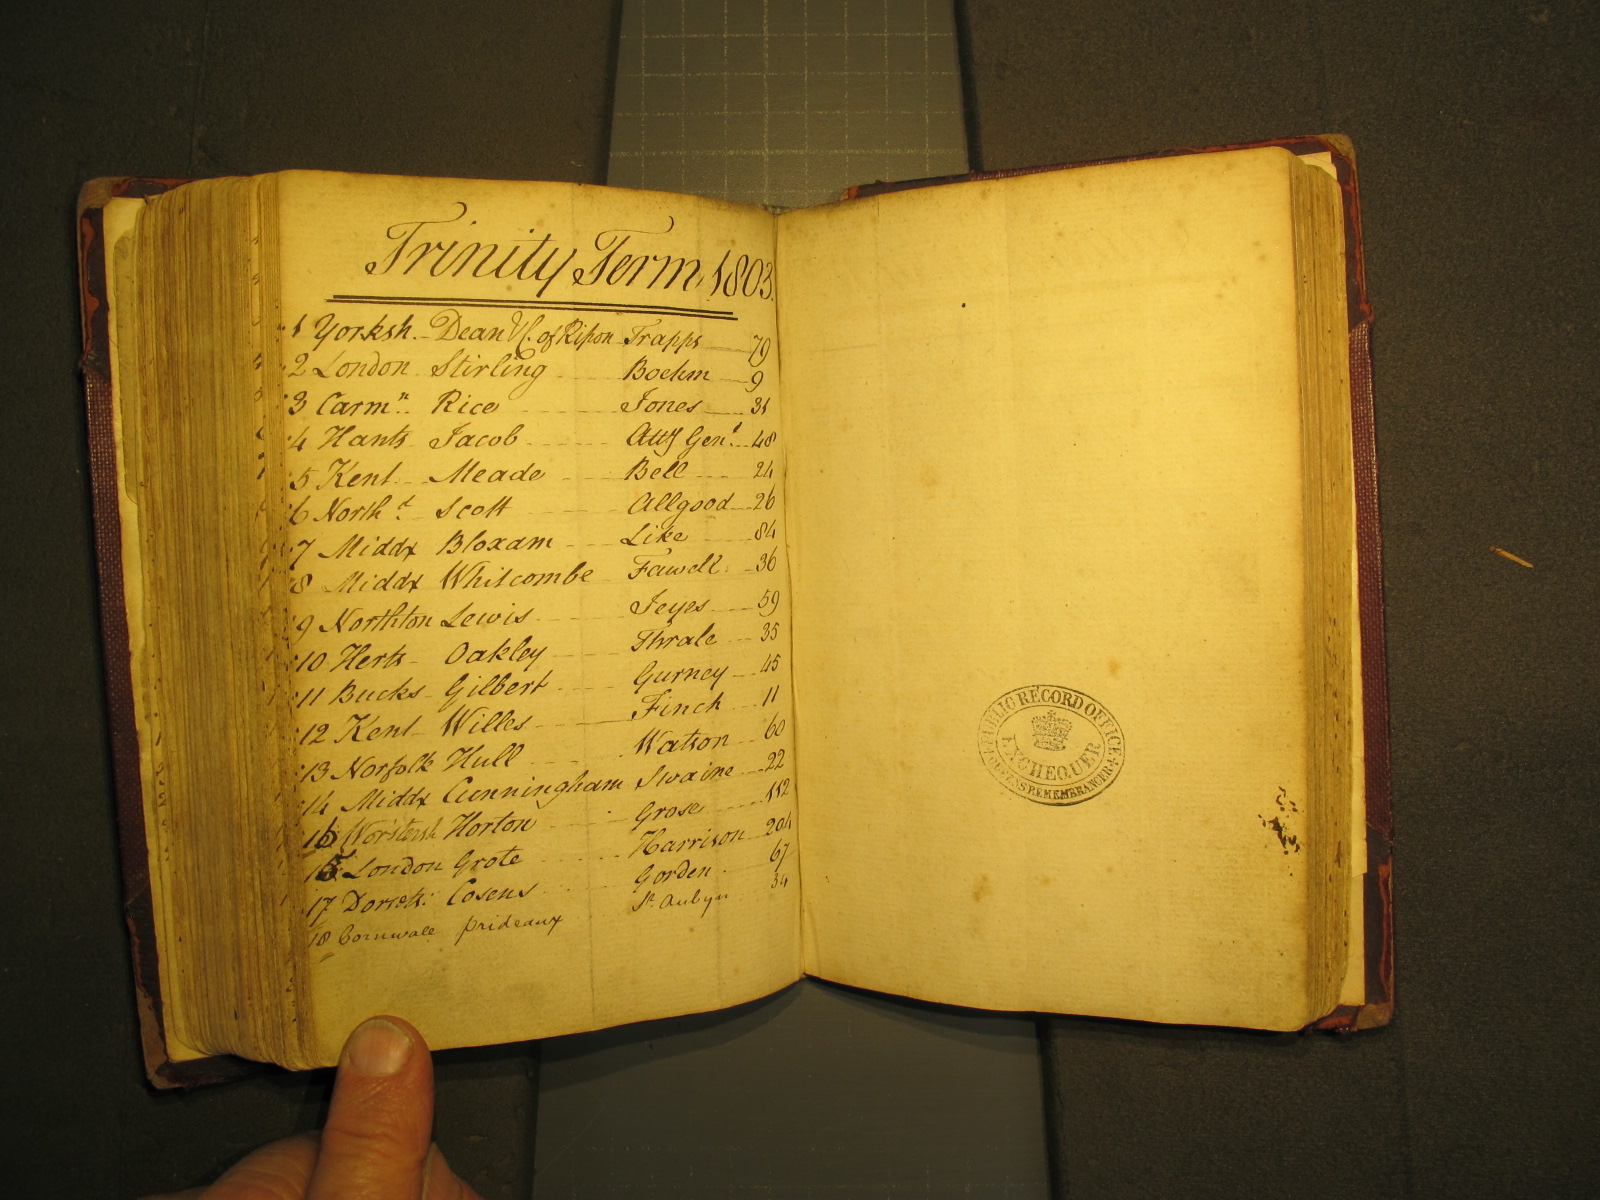 Trinity Term 1803.
1 Yorksh. Dean &C. of Ripon Trapps 79
2 London Stirling Boehm 9
3 Carmn. Rice Jones 31
4 Hants Jacob Atty Genl. 48
5 Kent Meade Bell 24
6 Northd. Scott Allgood 26
7 Middx Bloxam Like 84
8 Middx Whitcombe Fawell 36
9 Northton Lewis Jeyes 59
10 Herts Oakley Thrale 35
11 Bucks Gilbert Gurney 45
12 Kent Willes Finch 11
13 Norfolk Hull Watson 60
14 Middx Cunningham Swaine 22
16 Horton Grose 112
15 London Grote Harrison 204
17 Dorset: Cosens Gorden 67
18 Cornwall Prideaux St. Aubyn 34
PUBLIC RECORD OFFICE
EXCHEQUER
QUEENS REMEMBRANCER